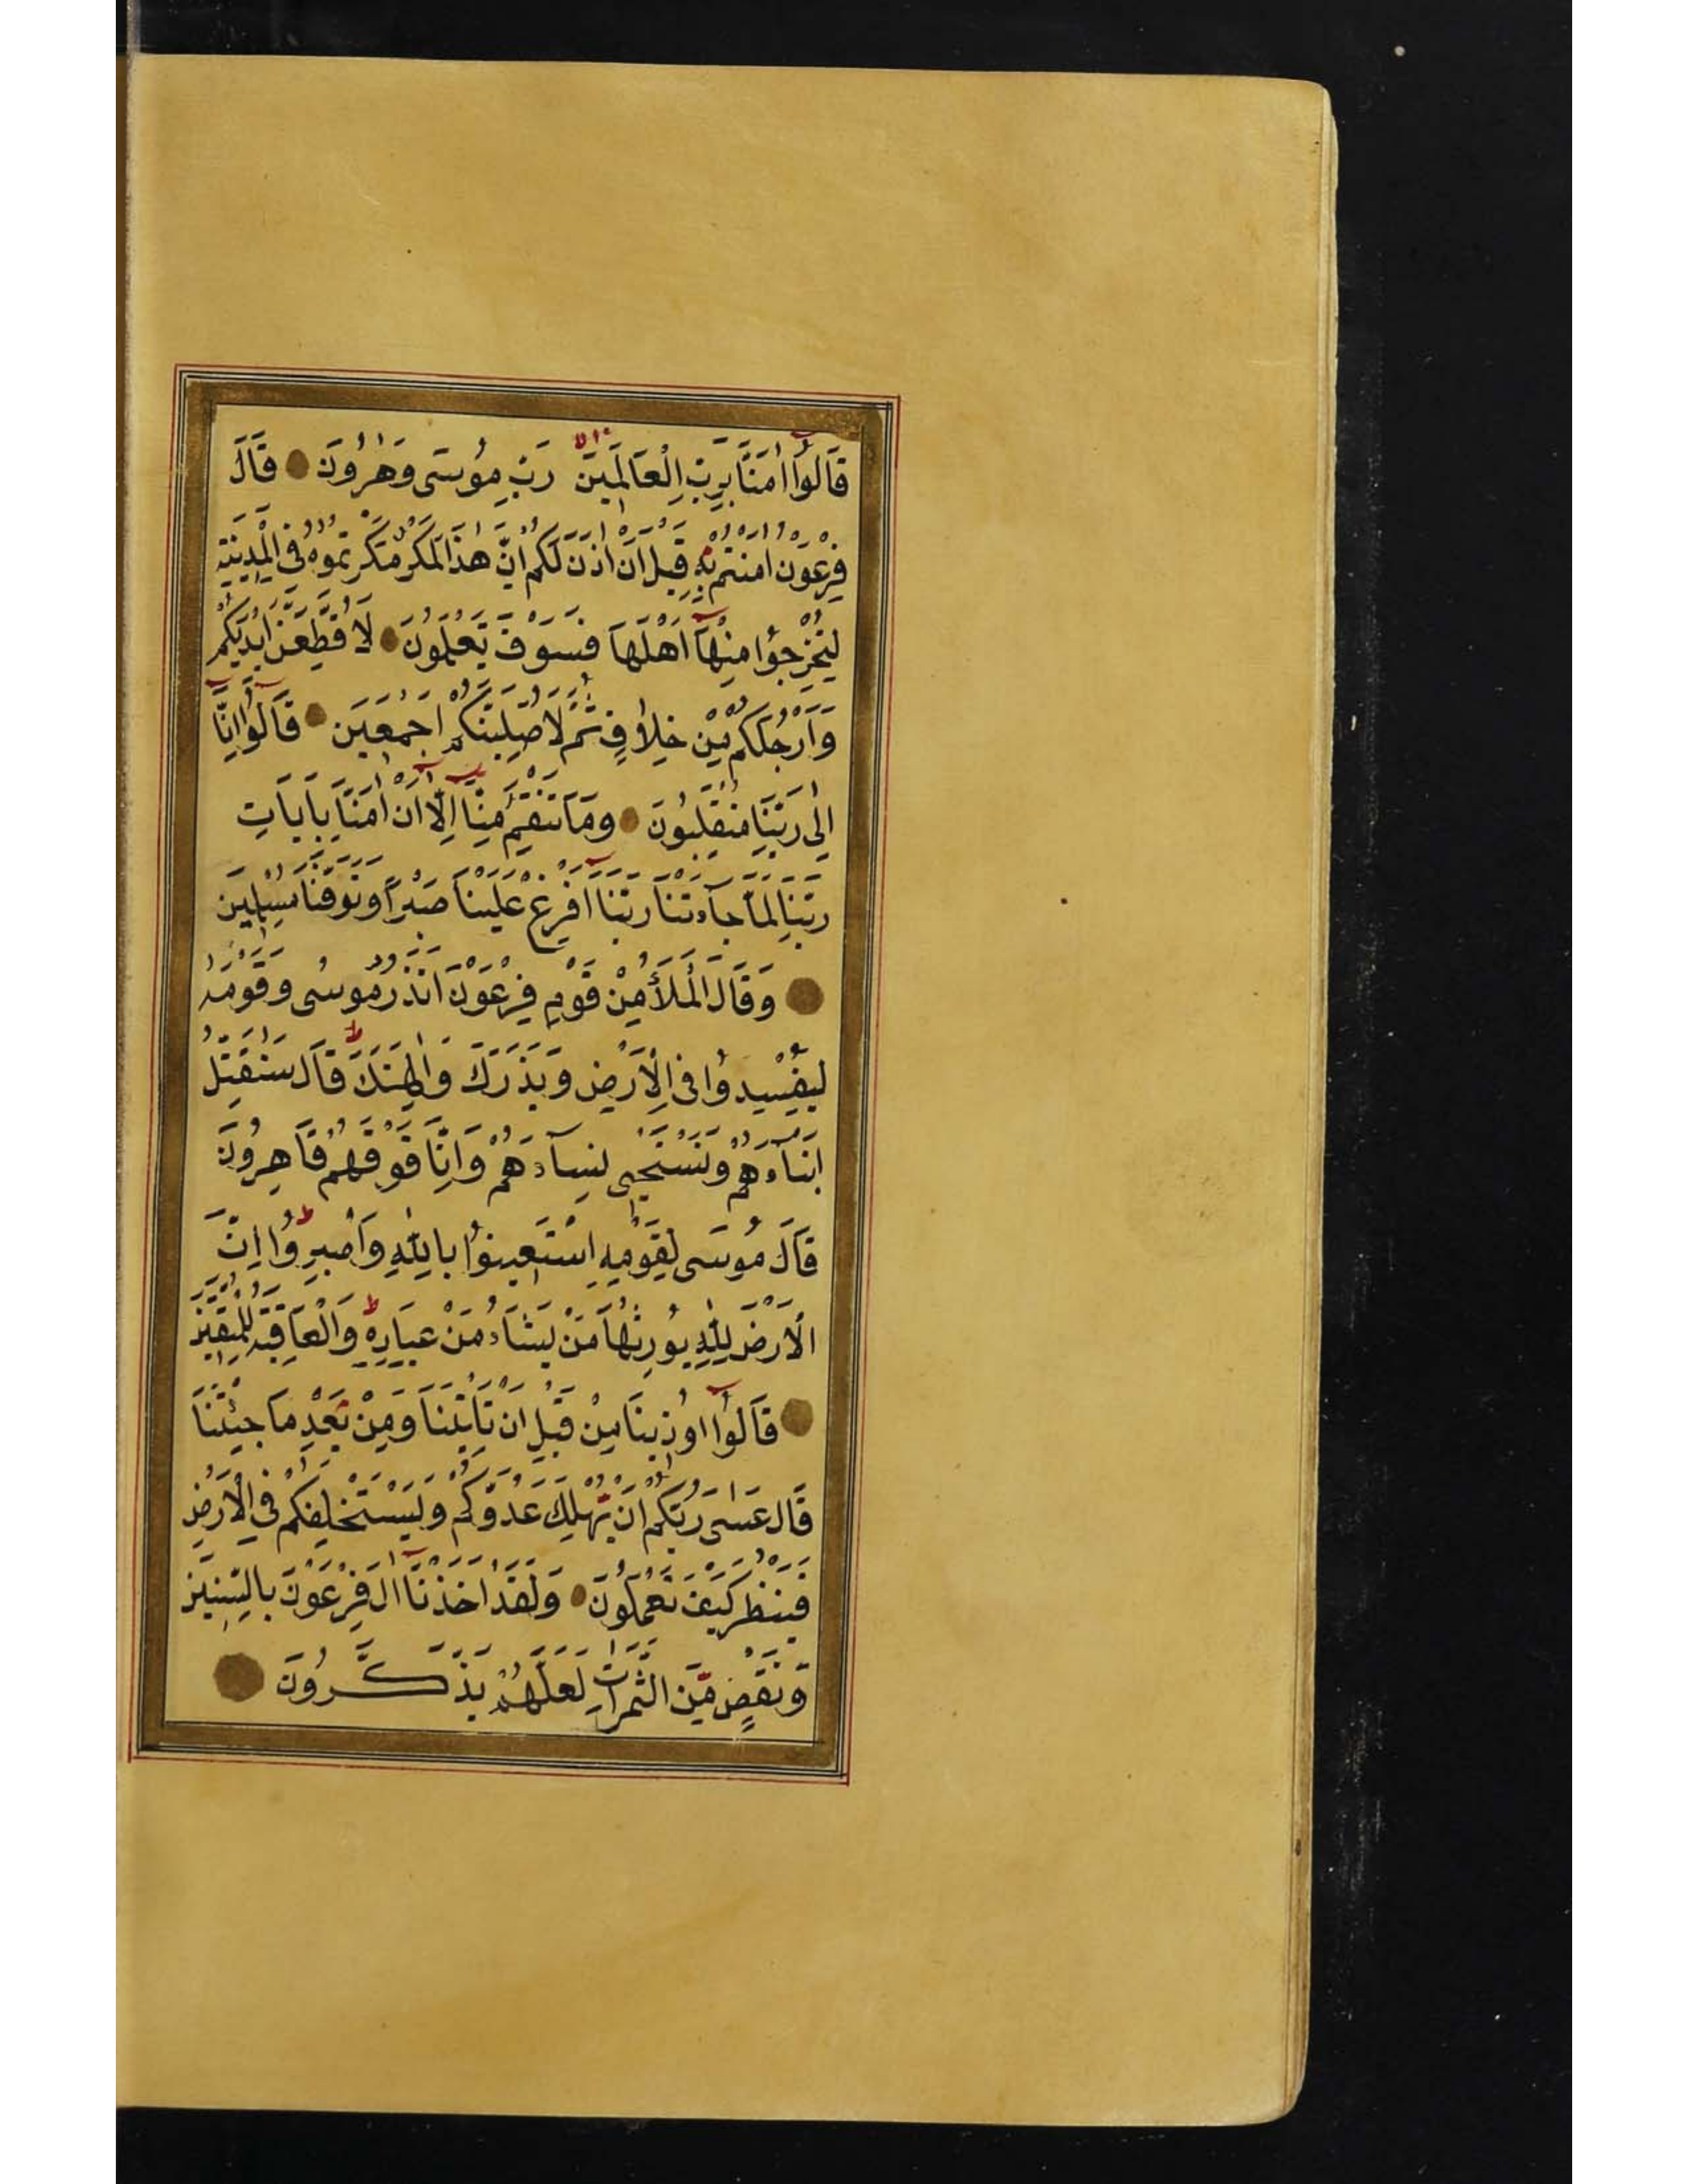 قَالُوٓا اٰمَنَّا بِرَبِّ الْعَالَمِينَ رَبِّ مُوسَى وَهٰرُونَ قَالَ
فِرْعَوْنُ اٰمَنْتُمْ بِهِ قَبْلَ اَنْ اٰذَنَ لَكُمْ اِنَّ هٰذَا لَمَكْرٌ مَكَرْتُمُوهُ فِى الْمَدِينَةِ
لِتُخْرِجُوا مِنْهَآ اَهْلَهَا فَسَوْفَ تَعْلَمُونَ لَاُقَطِّعَنَّ اَيْدِيَكُمْ
وَاَرْجُلَكُمْ مِنْ خِلَافٍ ثُمَّ لَاُصَلِّبَنَّكُمْ اَجْمَعِينَ قَالُوٓا اِنَّا
اِلٰى رَبِّنَا مُنْقَلِبُونَ وَمَا تَنْقِمُ مِنَّآ اِلَّآ اَنْ اٰمَنَّا بِاٰيَاتِ
رَبِّنَا لَمَّا جَآءَتْنَا رَبَّنَآ اَفْرِغْ عَلَيْنَا صَبْرًا وَتَوَفَّنَا مُسْلِمِينَ
وَقَالَ الْمَلَأُ مِنْ قَوْمِ فِرْعَوْنَ اَتَذَرُ مُوسٰى وَقَوْمَهُ
لِيُفْسِدُوا فِى الْاَرْضِ وَيَذَرَكَ وَاٰلِهَتَكَ قَالَ سَنُقَتِّلُ
اَبْنَآءَهُمْ وَنَسْتَحْيِى نِسَآءَهُمْ وَاِنَّا فَوْقَهُمْ قَاهِرُونَ
قَالَ مُوسَى لِقَوْمِهِ اسْتَعِينُوا بِاللّٰهِ وَاصْبِرُوا اِنَّ
الْاَرْضَ لِلّٰهِ يُورِثُهَا مَنْ يَشَاءُ مِنْ عِبَادِهِ وَالْعَاقِبَةُ لِلْمُتَّقِينَ
قَالُوٓا اُوذِينَا مِنْ قَبْلِ اَنْ تَاْتِيَنَا وَمِنْ بَعْدِ مَا جِئْتَنَا
قَالَ عَسٰى رَبُّكُمْ اَنْ يُهْلِكَ عَدُوَّكُمْ وَيَسْتَخْلِفَكُمْ فِى الْاَرْضِ
فَيَنْظُرَ كَيْفَ تَعْمَلُونَ وَلَقَدْ اَخَذْنَآ اٰلَ فِرْعَوْنَ بِالسِّنِينَ
وَنَقْصٍ مِّنَ الثَّمَرَاتِ لَعَلَّهُمْ يَذَّكَّرُونَ